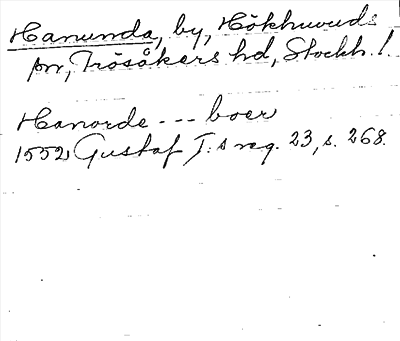 Hanunda, by, Hökhuvuds
sn, Frösåkers hd, Stockh. l.
Hanorde --- boer
1552 Gustaf I:s reg. 23, s. 268.